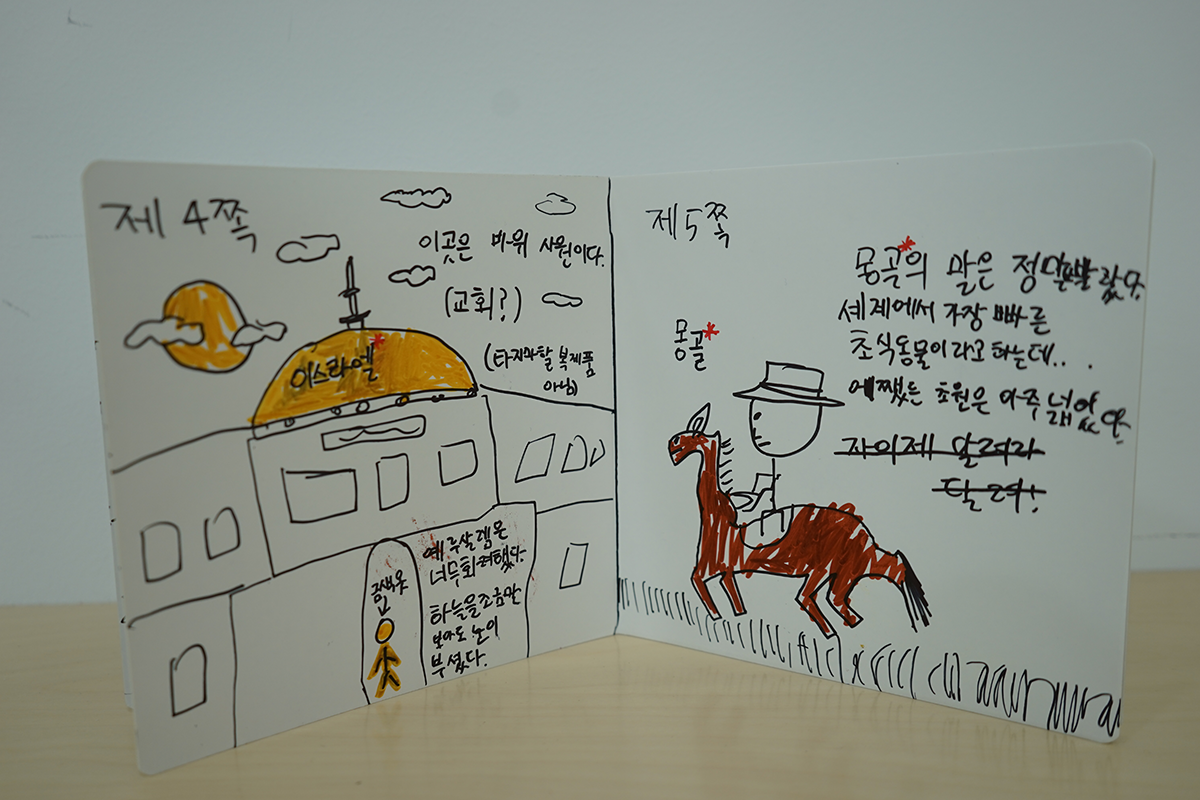 제 4쪽
이곳은 바위 사원이다.
(교회?)
(타지마할 복제품
아님)
이스라엘*
예루살렘은
너무 화려했다.
하늘을 조금만
보아도 눈이
부셨다.
금색옷
제 5쪽
몽골*의 말은 정말 빨랐다.
세계에서 가장 빠른
초식동물이라고 하는데...
어쨌든 초원은 아주 넓었다.
자 이제 달려라
달려!
몽골*